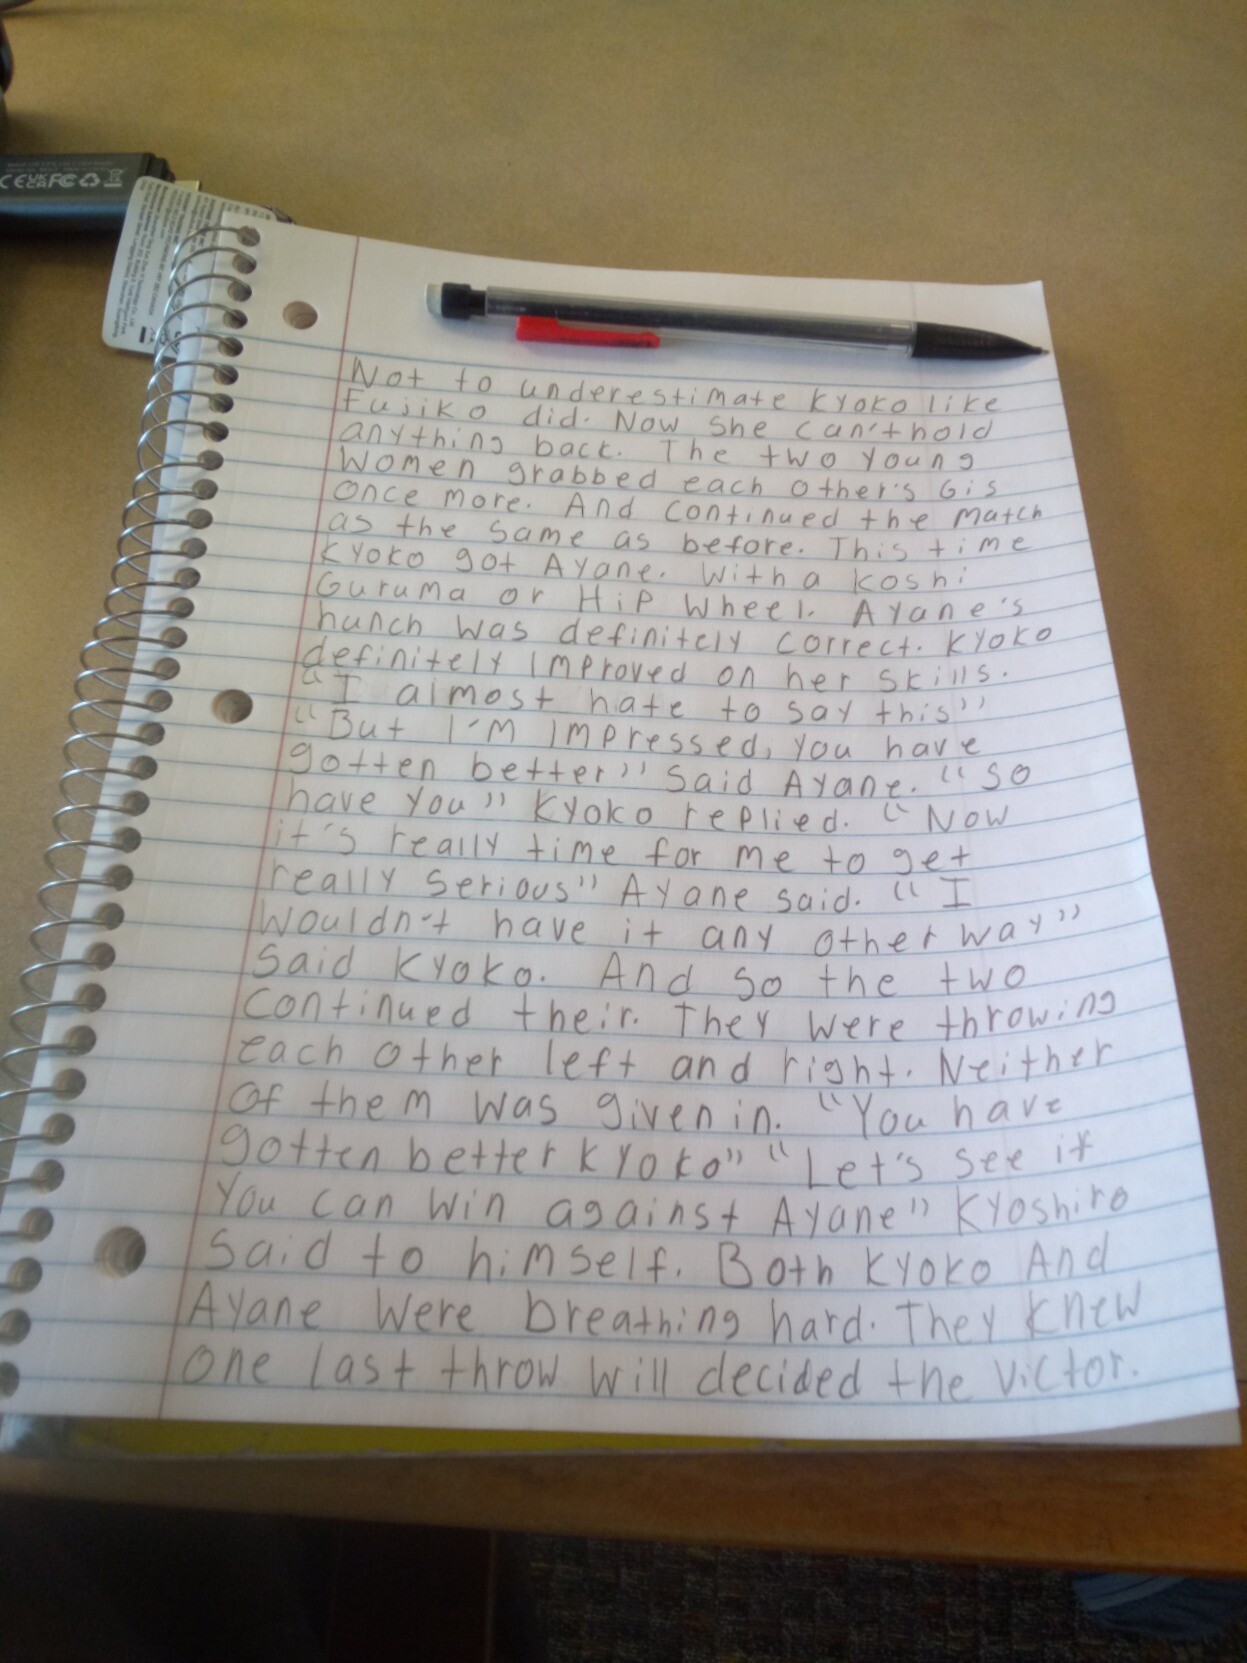 CE UKCA FC
Not to underestimate Kyoko like
Fujiko did. Now she can't hold
anything back. The two young
women grabbed each other's Gis
once more. And continued the match
as the same as before. This time
Kyoko got Ayane. With a Koshi
Guruma or Hip Wheel. Ayane's
hunch was definitely correct. Kyoko
definitely improved on her skills.
"I almost hate to say this"
"But I'm impressed, you have
gotten better" said Ayane. "So
have you" Kyoko replied. "Now
it's really time for me to get
really serious" Ayane said. "I
wouldn't have it any other way"
said Kyoko. And so the two
continued their. They were throwing
each other left and right. Neither
of them was given in. "You have
gotten better Kyoko" "Let's see if
you can win against Ayane" Kyoshiro
said to himself. Both Kyoko And
Ayane were breathing hard. They knew
one last throw will decided the victor.